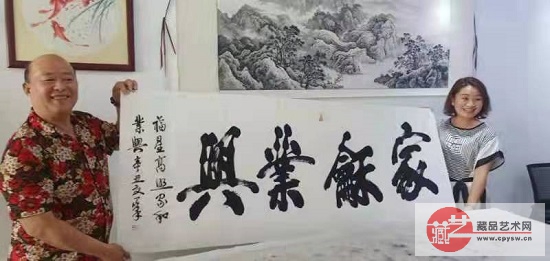 家龢業興
福星高照家和
業興辛丑文
藏艺
藏品艺术网
www.cpysw.cn